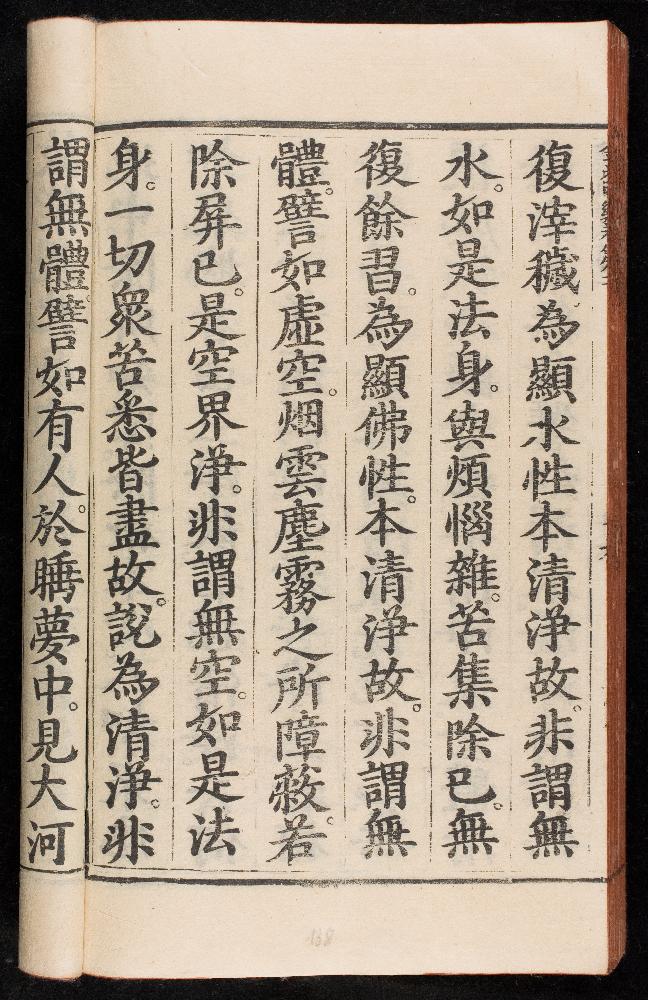 復滓穢。為顯水性本清淨故。非謂無
水。如是法身。與煩惱雜。苦集除已。無
復餘習。為顯佛性。本清淨故。非謂無
體。譬如虛空。烟雲塵霧之所障蔽。若
除屏已。是空界淨。非謂無空。如是法
身。一切衆苦悉皆盡故。說為清淨。非
謂無體。譬如有人。於睡夢中。見大河
138